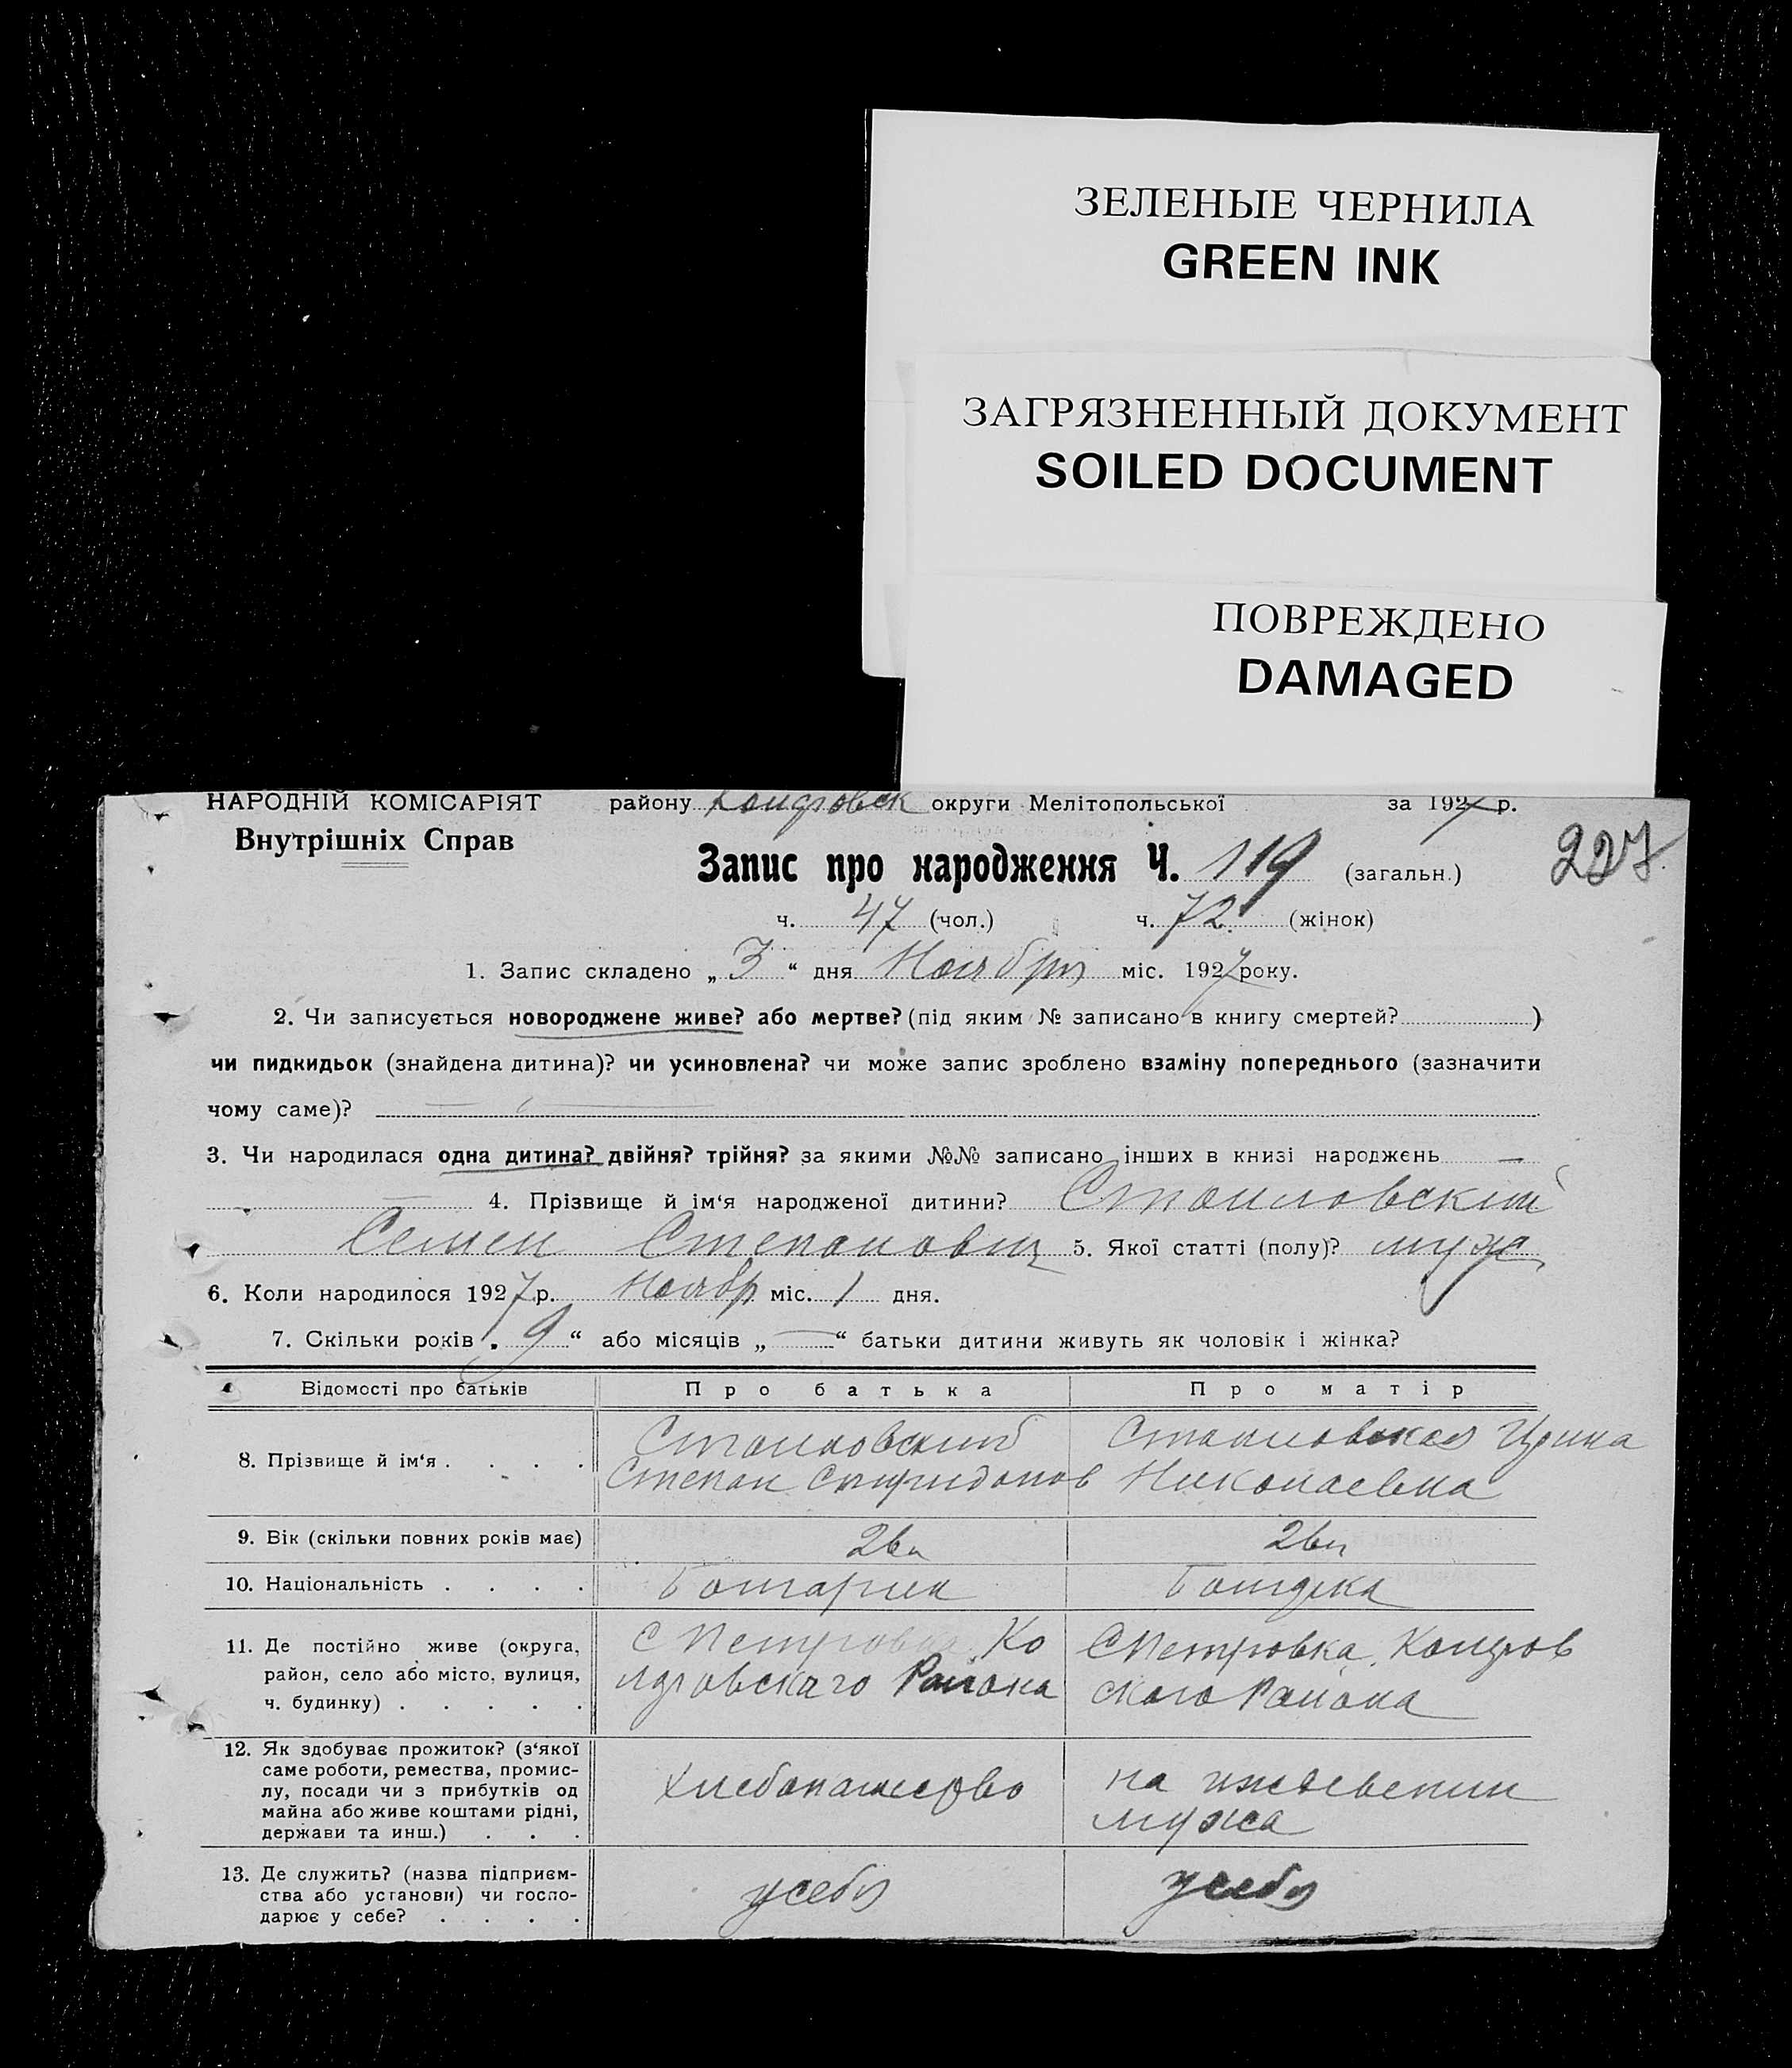 ЗЕЛЕНЫЕ ЧЕРНИЛА
GREEN INK
ЗАГРЯЗНЕННЫЙ ДОКУМЕНТ
SOILED DOCUMENT
ПОВРЕЖДЕНО
DAMAGED
НАРОДНІЙ КОМІСАРІЯТ району округи Мелітопольської за 1927 р.
Внутрішніх Справ
227
Запис про народження Ч. 119 (загальн.)
ч. 47 (чол.) ч. 72 (жінок)
1. Запис складено „ 3 “ дня Ноября міс. 1927 року.
2. Чи записується новороджене живе? або мертве? (під яким № записано в книгу смертей? )
чи пидкидьок (знайдена дитина)? чи усиновлена? чи може запис зроблено взаміну попереднього (зазначити
чому саме)?
3. Чи народилася одна дитина? двійня? трійня? за якими №№ записано інших в книзі народжень —
— 4. Прізвище й ім‘я народженої дитини? Стоиловский
Семен Степанович 5. Якої статті (полу)? муж
6. Коли народилося 1927 р. Ноябр міс. 1 дня.
7. Скільки років „ 9 “ або місяців „ — “ батьки дитини живуть як чоловік і жінка?
Відомості про батьків Про батька Про матір
8. Прізвище й ім‘я . . . . Стоиловский Стоиловская Ирина
Степан Спиридонов Николаевна
9. Вік (скільки повних років має) 26 л 26 л
10. Національність . . . . Болгарин Болгарка
11. Де постійно живе (округа, район, село або місто, вулиця, ч. будинку) . . . . .
С Петровка Ко
ловского Района
С Петровка
ского Района
12. Як здобуває прожиток? (з‘якої саме роботи, ремества, промис-
лу, посади чи з прибутків од
майна або живе коштами рідні,
держави та инш.) . . .
хлебопашество
на иждевении
мужа
13. Де служить? (назва підприєм-
ства або установи) чи госпо-
дарює у себе? . . . .
у себя
у себя